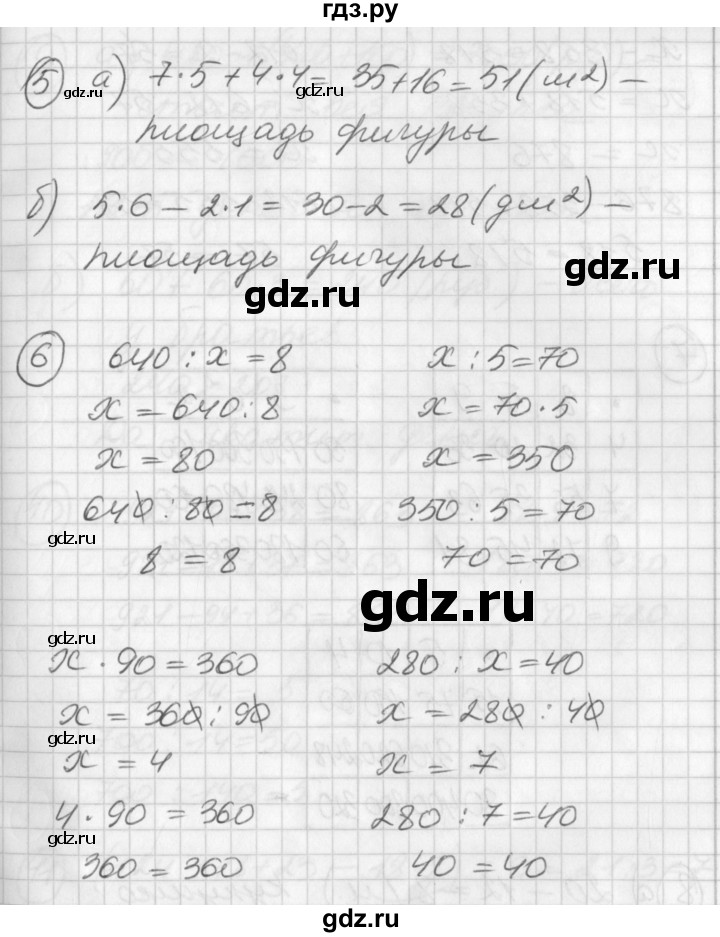 гдз.ру
5 а) 7·5+4·4= 35+16=51(м²) —
площадь фигуры
б) 5·6 — 2·1 = 30-2=28(дм²) —
площадь фигуры
gdz.ru
gdz.ru
gdz.ru
gdz.ru
gdz.ru
6 640 : x = 8 x : 5=70
x = 640:8 x = 70·5
x = 80 x = 350
640 : 80 = 8 350 : 5 = 70
gdz.ru
8 = 8 70 = 70
gdz.ru
gdz.ru
x · 90 = 360 280 : x = 40
x = 360 : 90 x = 280 : 40
gdz.ru
x = 4 x = 7
4 · 90 = 360 280 : 7 = 40
gdz.ru
360 = 360 40 = 40
gdz.ru